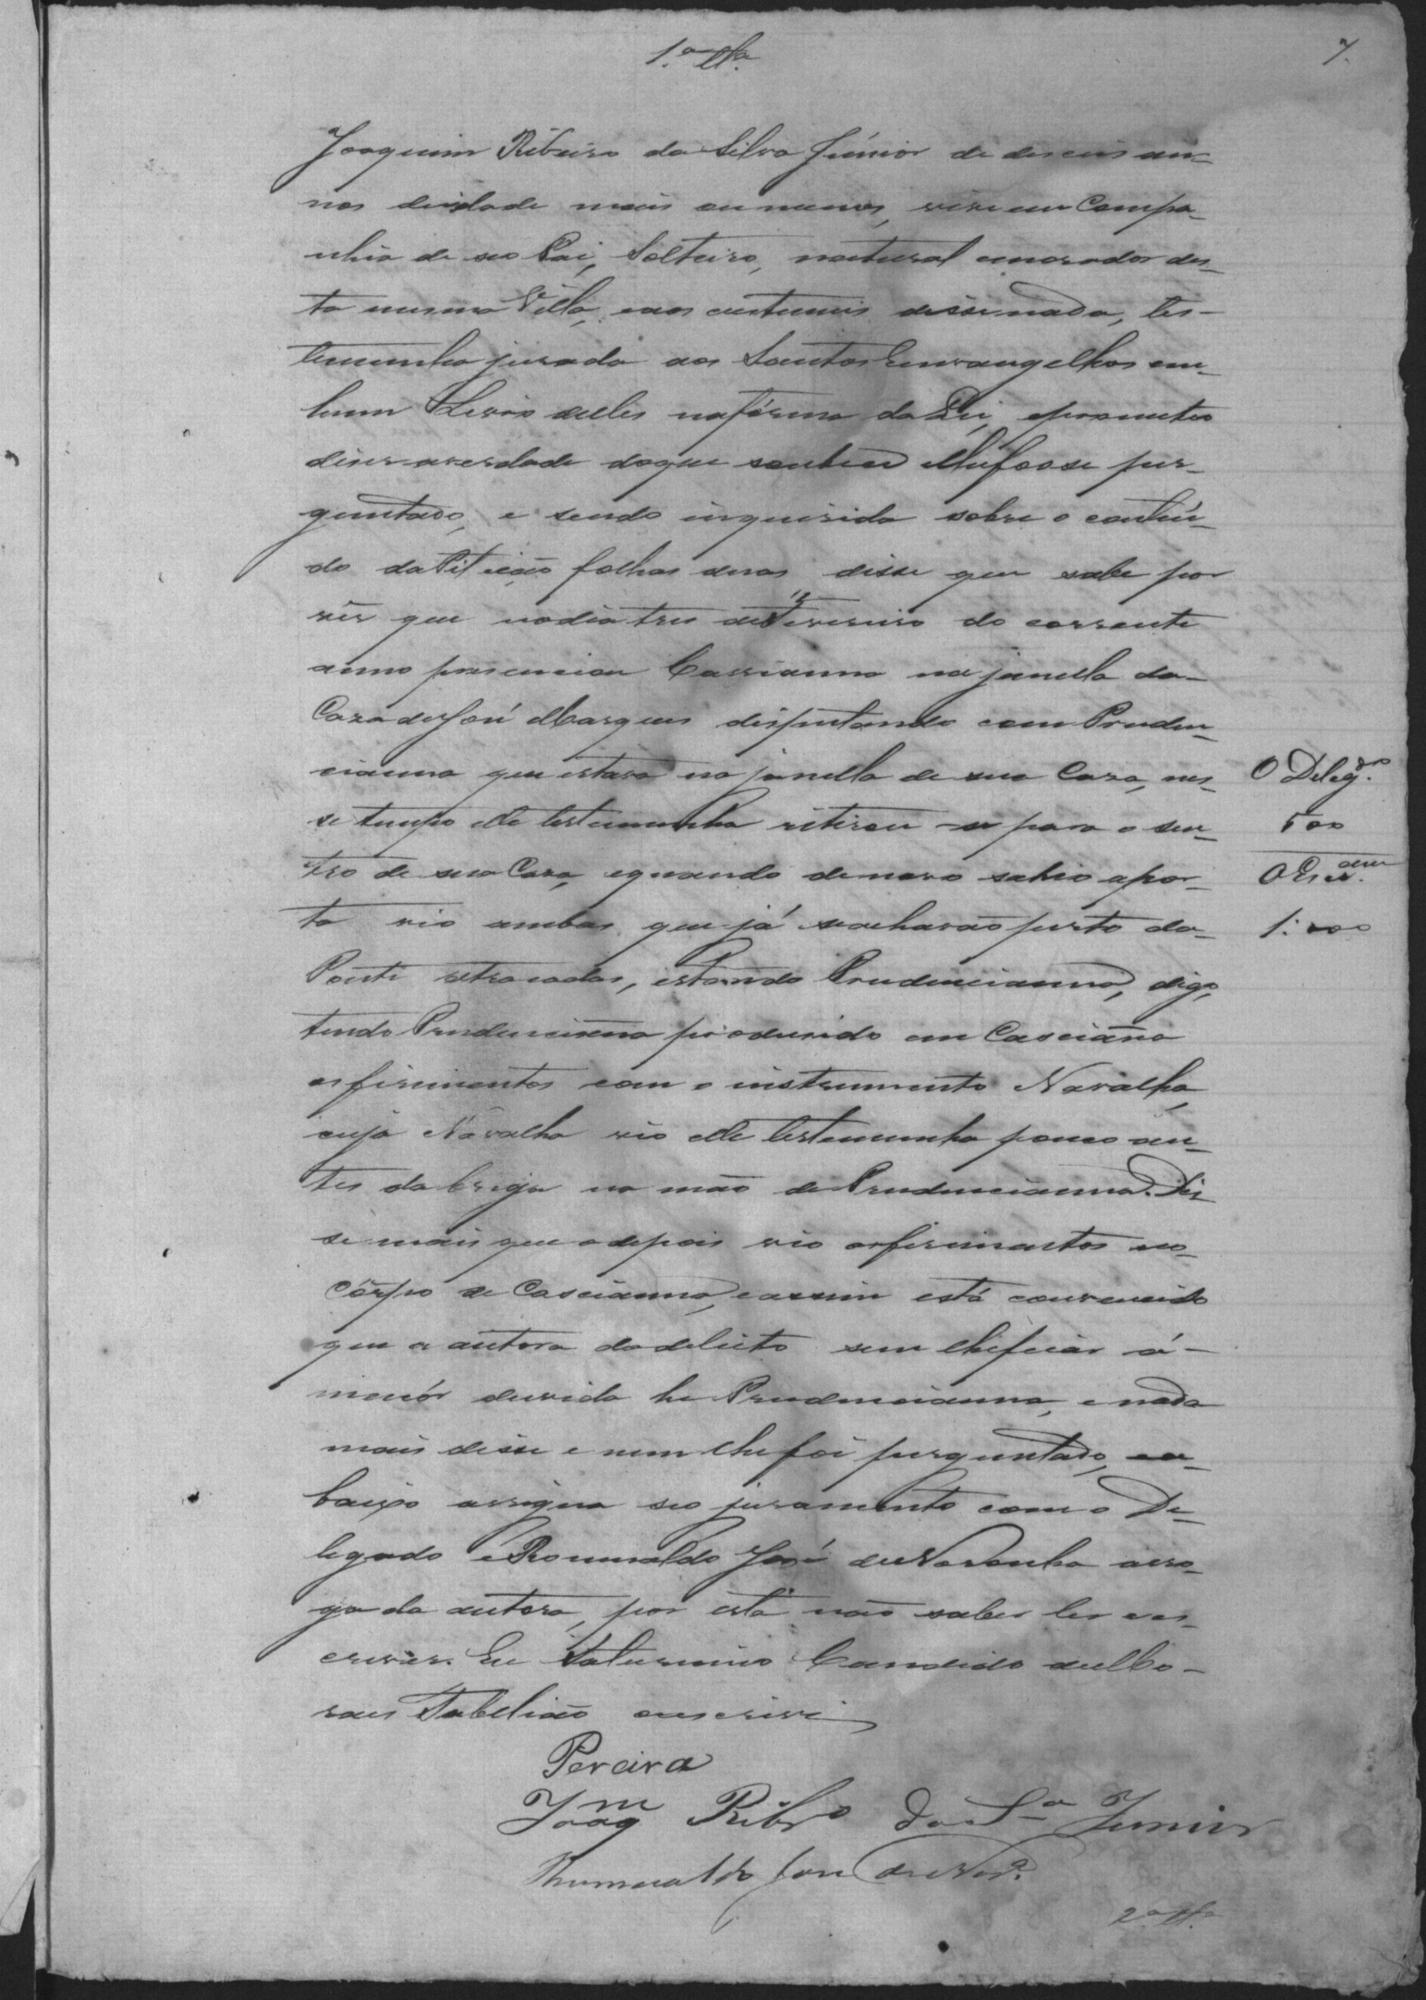 1.ª Ttª
7.
Joaquim Ribeiro da Silva Júnior de deseis an-
nos deidade mais oumenos, vive em Compa-
nhia de seo Pai, Solteiro, natural emorador des-
ta mesma Villa, eaos custumes disse nada, tes-
temunha jurada aos Santos Envangelhos em-
hum Livro delles nafórma da Lei, eprometeo
diser averdade doque soubese elhefosse per-
guntado, e sendo inquerida sobre o contiú-
do da Pitição folhas duas disse que sabe por
vêr que nodia tres de Fevereiro do corrente
anno presenciou Cassianna na janella da-
Caza de José Marques disputando com Pruden-
cianna que estava na janella de sua Caza, nes-
se tempo elle testemunha retirou-se para o den-
tro de sua Caza, equando denovo sahio apor-
ta vio ambas que já seachavão perto da-
Ponte atracadas, estando Prudencianna, digo,
tendo Prudenciana produsido em Casciana
osfirimentos com o instrumento Navalha,
cuja Navalha vio elle testemunha pouco an-
tes da briga na mão de Prudencianna. Dis-
se mais que odepois vio osfirimentos no-
côrpo de Cascianna, eassim está convencido
que a autora dodelicto sem lheficar a-
menór duvida he Prudencianna, e nada
mais disse e nem lhe foi perguntado, ea-
baixo assigna seo juramento com o De-
legado e Romualdo José de Noronha arro-
go da autora, por esta não saber ler e es-
crever. Eu Saturnino Candido de Mo-
raes Tabelião oescrivi
O Deleg.do
500
O Escr.am
1:000
Pereira
Joaqm Ribrº da Sª Junior
Rumualdo José de Norª.
2ª Ttª